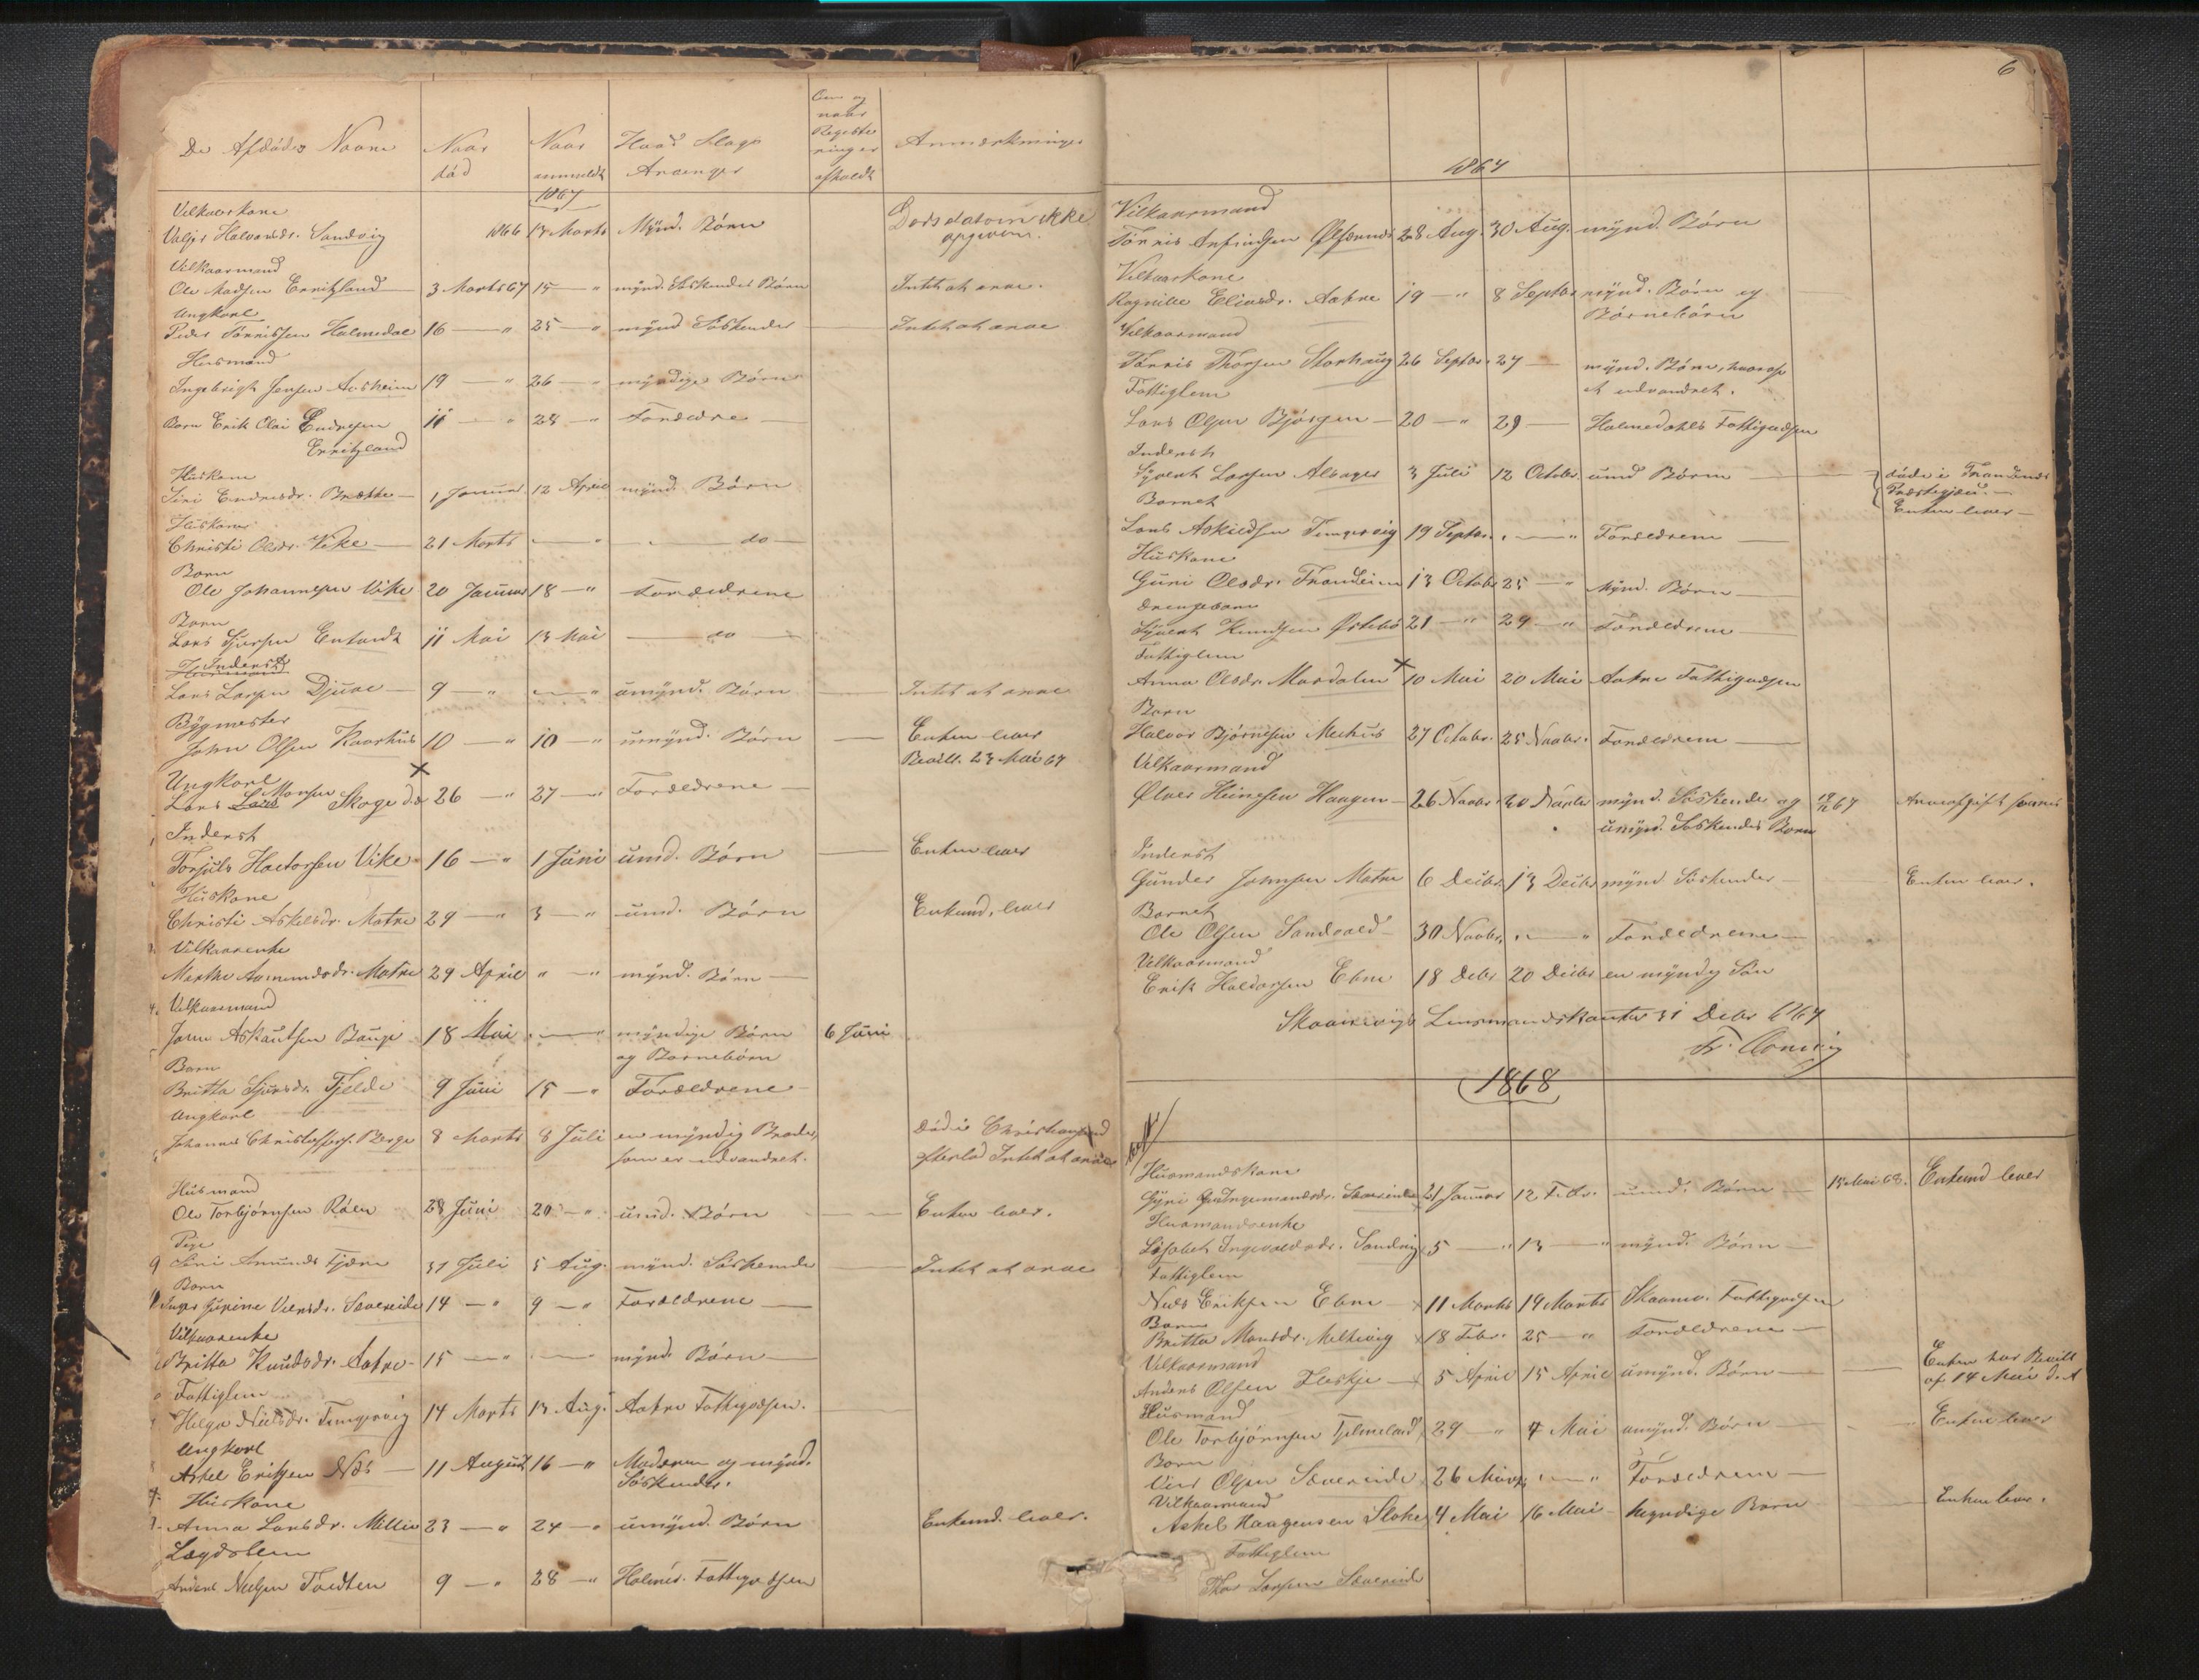 De Afdødes Navne Naar død Naar anmeldt Hvad Slags Arvinger Om og naar Registeringer afholdt Anmærkninger
1867
Vilkaarskone
Valgjer Halvorsdr. Sandvig 1866 13 Marts Mynd. Børn Dødsdatum ikke opgiven.
Vilkaarmand
Ole Madsen Erritzland 3 Marts 67 15 — " mynd. Søskendes Børn Intet at arve.
Ungkarl
Peder Tørrissen Halmedal 16 — " 25 — " mynd Søskender Intet at arve
Husmand
Ingebrigt Jensen Aasheim 19 — " 26 — " myndige Børn
Barn Erik Olai Endresen Erritzland 11 — " 28 — " Forældre —
Huskone
Siri Endresdr. Brætke — 1 Januar 12 April mynd. Børn
Huskone
Christi Olsdr. Vike — 21 Marts — " — do —
Barn
Ole Johannesen Vike 20 Januar 18 — " Forældrene
Barn
Lars Sjursen 11 Mai 13 Mai — do —
Inderst
Lars Larsen Djuve — 9 — " — " umynd. Børn — Intet at arve
Bygmester
John Olsen Kaarhus 10 — " 10 — " umynd. Børn — Enken lever
Bevill. 23 Mai 67
Ungkarl
Lars Monsen Skoge 26 — " 27 — " Forældrene —
Inderst
Torjuls Vike 16 — " 1 Juni umd. Børn — Enken lever
Huskone
Christi Askelsdr. Matre 29 — " 3 — " umd. Børn Enkemd. lever
Vilkaarenke
Marthe Aamundsdr. Matre 29 April " — " mynd. Børn —
Vilkaarmand
John Askautsen Bauge 18 Mai — " myndige Børn 6 Juni
og Børnebørn
Barn
Britta Sjursdr. Fjelde 9 Juni 15 — " Forældrene —
Ungkarl
Johannes Christophers. Berge 8 Marts 8 Juli en myndig Broder, Død i Christiansund
som er udvandret. efterlod Intet at arve
Husmand
Ole Torbjørnsen Røen 28 Juni 20 — " umd. Børn — Enken lever.
Pige
Siri Amunds Tjærn 31 Juli 5 Aug. mynd. Søskende — Intet at arve
Barn
Inger Jurine Viersdr. Sævereide 14 — " 9 — " Forældrene —
Vilkaarenke
Britta Knudsdr. Aatre 15 — " — mynd. Børn —
Fattiglem
Helga Nielsdr. Tungesvig 14 Marts 13 Aug. Aatre Fattigvæsen. —
Ungkarl
Askel Eriksen Næs — 11 August 16 — " Moderen og mynd. Søskender.
Huskone
Anna Larsdr. Millie 23 — " 24 — " umynd. Børn Enkemd. lever.
Lægdslem
Anders Nielsen Tvedten 9 — " 28 — " Halmed. Fattigvæsen
6
1867
Vilkaarmand
Tørris Anfindsen Ølfærnes 28 Aug. 30 Aug. mynd. Børn
Vilkaarskone
Ragnille Eliasdr. Aatre 19 — " 8 Septbr mynd. Børn og
Børnebørn
Vilkaarmand
Tørris Thorsen Storhaug 26 Septbr. 27 — mynd. Børn, hvoraf
et udvandret.
Fattiglem
Lars Olsen Bjørgen — 20 — " 29 — Halmedahls Fattigvæsen
Inderst
Sjovat Larsen Alsager 3 Juli 12 Octobr. umd Børn — døde i Franheims
Præstegjæld. —
Enken lever —
Barnet
Lars Askildsen Tungesvig 19 Septbr. " — " Forældrene —
Huskone
Guri Olsdr. Tranheim 13 Octobr 25 — " Mynd. Børn —
Drengebarn
Sjovat Knudsen Østebø 21 — " 29 — " Forældrene —
Fattiglem
Anna Olsdr. Mardalen × 10 Mai 20 Mai Aatre Fattigvæsen
Barn
Halvor Bjørnesen Mehus 27 Octobr. 25 Novbr. Forældrene —
Vilkaarmand
Ølver Heinesen Haagen — 26 Novbr. 20 Decbr mynd. Søskende og 67 Arveafgift svares
umynd. Søskendes Børn
Inderst
Gunder Johnsen Matre 6 Decbr. 13 Decbr mynd Søskender — Enken lever.
Barnet
Ole Olsen Sandvold — 30 Novbr. " — " Forældrene —
Vilkaarmand
Erik Haldorsen Ebne 18 Debr 20 Decbr en myndig Søn
Skaanevigs Lensmandskontor 31 Debr 1867
1868
Husmandskone
Guri Ingemundsdr. Sævereide 21 Januar 12 Febr. umd. Børn — 15 Mai 68. Enkemd lever
Husmandsenke
Lisabet Ingevaldsdr. Sandvig 5 — " 13 — " mynd. Børn —
Fattiglem
Niels Eriksen Ebne — 11 Marts 19 Marts Skaanev. Fattigvæsen
Barn
Britta Monsdr. Meltevig 18 Febr. 25 — " Forældrene —
Vilkaarmand
Anders Olsen Fleskje — 5 April 15 April umynd. Børn — Enken har Bevill
af 14 Mai d. A
Husmand
Ole Torbjørnsen Tjelmeland 29 — " 4 Mai umynd. Børn — Enken lever
Barn
Vier Olsen Sævereide 26 Marts " — " Forældrene —
Vilkaarmand
Askel Haagensen Stoke 4 Mai 16 Mai — Myndige Børn Enken lever.
Fattiglem
Thor Larsen Sævereide